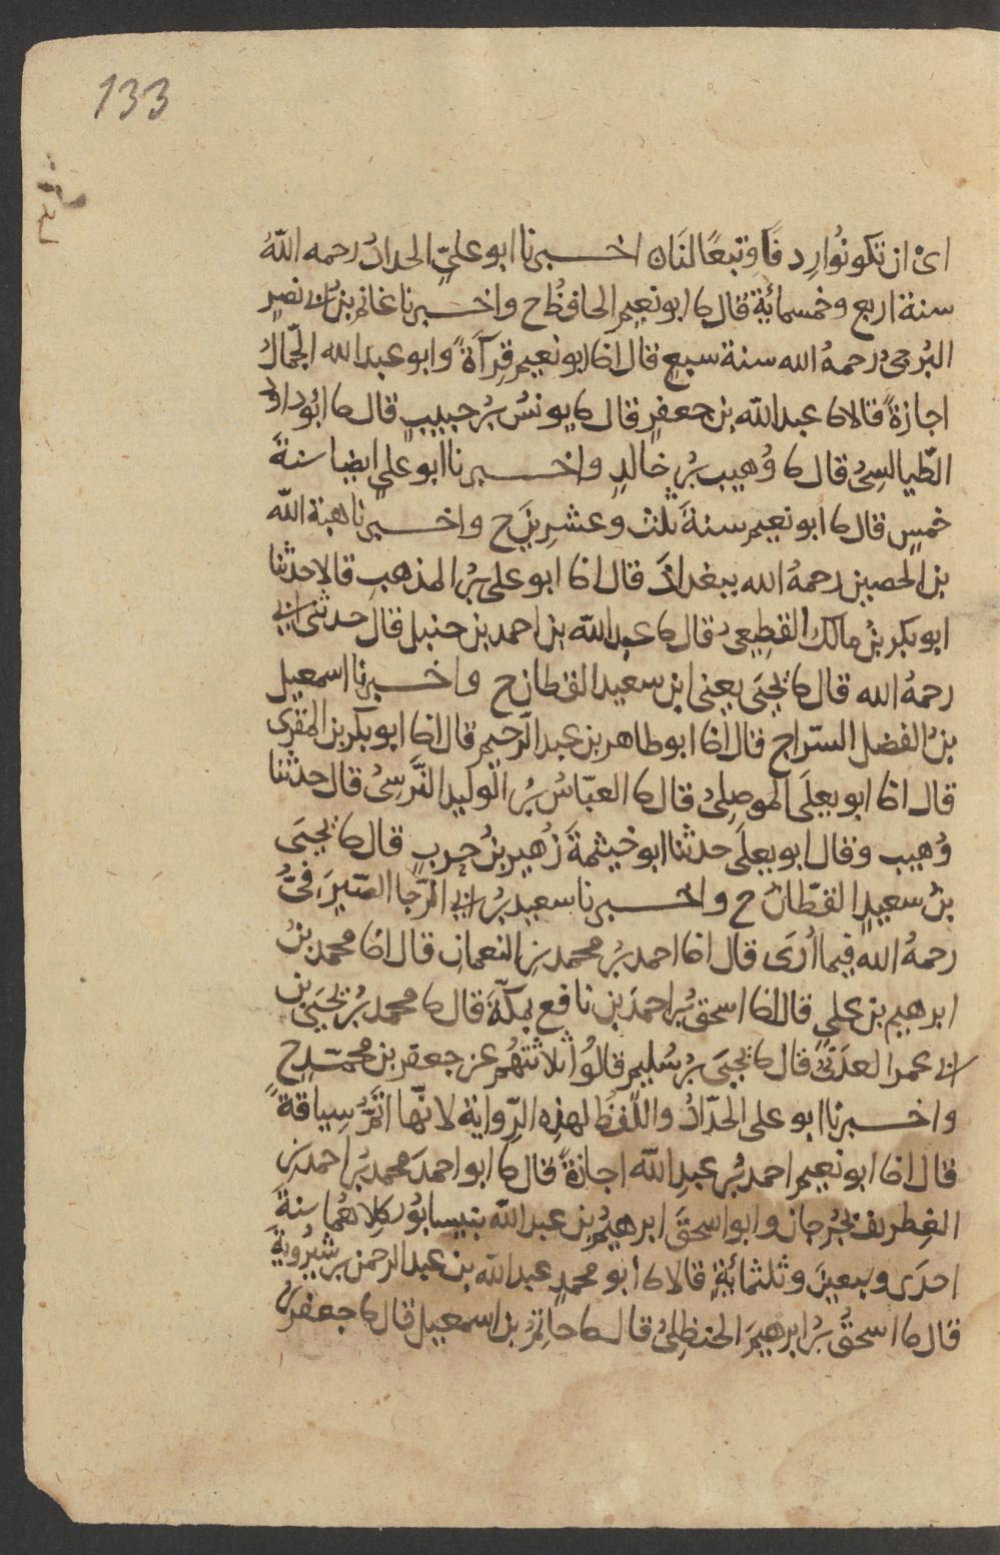 133
اىْ ان تكونُوا رِدفًا وتبعًا لنَاه اخــبرنا ابو عليّ الحدادُ رحمه اللّهُ
سنة اربع وخمسمائةٍ قال نا ابو نعيم الحافظُ ح واخــبرنا غانم بنُ ابى نصرٍ
البُرجىُ رحمهُ الله سنة سبعٍ قال انا ابو نعيم قِرآةً وابو عبد الله الجّمالُ
اجازةً قالا نا عبد اللّه بن جعفرٍ قال نا يونسُ بنُ حبيبٍ قال نا ابُو داود
الطّيالسِىُ قال نا وُهيب بنُ خالدٍ واخــبرنا ابو علي ايضا سنةَ
خمسٍ قال نا ابو نعيم سنةَ ثلث وعشرِينَ ح واخــبرنا هبة اللّه
بن الحصين رحمهُ الله ببغدادَ قال انا ابو على بنُ المذهبِ قالا حدثنا
ابو بكر بنُ مالك القطِيعىُ قال نا عبد اللّه بن احمد بن حنبل قال حدثنى ابى
رحمهُ الله قال نا يحيَى يعنى ابن سعيد القطان ح واخــبرنا اسمعيل
بنُ الفضل السّراج قال انا ابو طاهر بن عبد الرّحيم قال انا ابو بكر بن المقرى
قال انا ابو يعلَى الموصِلِىُ قال نا العبّاسُ بنُ الوليد النَّرسِىُ قال حدثنا
وُهيب وقال ابو يعلَى حدثنا ابو خيثمةَ زُهير بنُ حربٍ قال نا يحيَى
بنُ سعيدٍ القطّانُ ح واخــبرنا سعيد بنُ ابى الرّجا الصّيرَفىُّ
رحمهُ الله فيما اُرَى قال انا احمد بنُ محمد بنِ النعمانِ قال انا محمد بنُ
ابرهيم بن علىٍ قال انا اسحق بنُ احمدَ بن نافع بمكّةَ قال نا محمد بنُ يحيَى بن
ابى عمر العدَنىُ قال نا يحيَى بنُ سُليم قالُوا ثلاثتُهُم عن جعفر بن محمّدٍ ح
واخــبرنا ابو على الحدّادُ واللّفظُ لهذِه الرّواية لانّها اتمُّ سِياقةً
قال انا ابو نعيم احمد بنُ عبدِ اللّه اجازةً قال نا ابو احمدَ محمد بنُ احمد بن
الغِطريف بجُرجان وابو اسحقَ ابرهيمُ بن عبد اللّه بنيسابُور كلاهُما سنةَ
احدَى وسبعينَ وثلثمائةٍ قالا نا ابو محمدٍ عبد اللّه بن عبد الرحمن بن شيرُويةَ
قال نا اسحقُ بنُ ابرهيمَ الحنظلِىُ قال نا حاتمُ بن اسمعيل قال نا جعفر بنُ